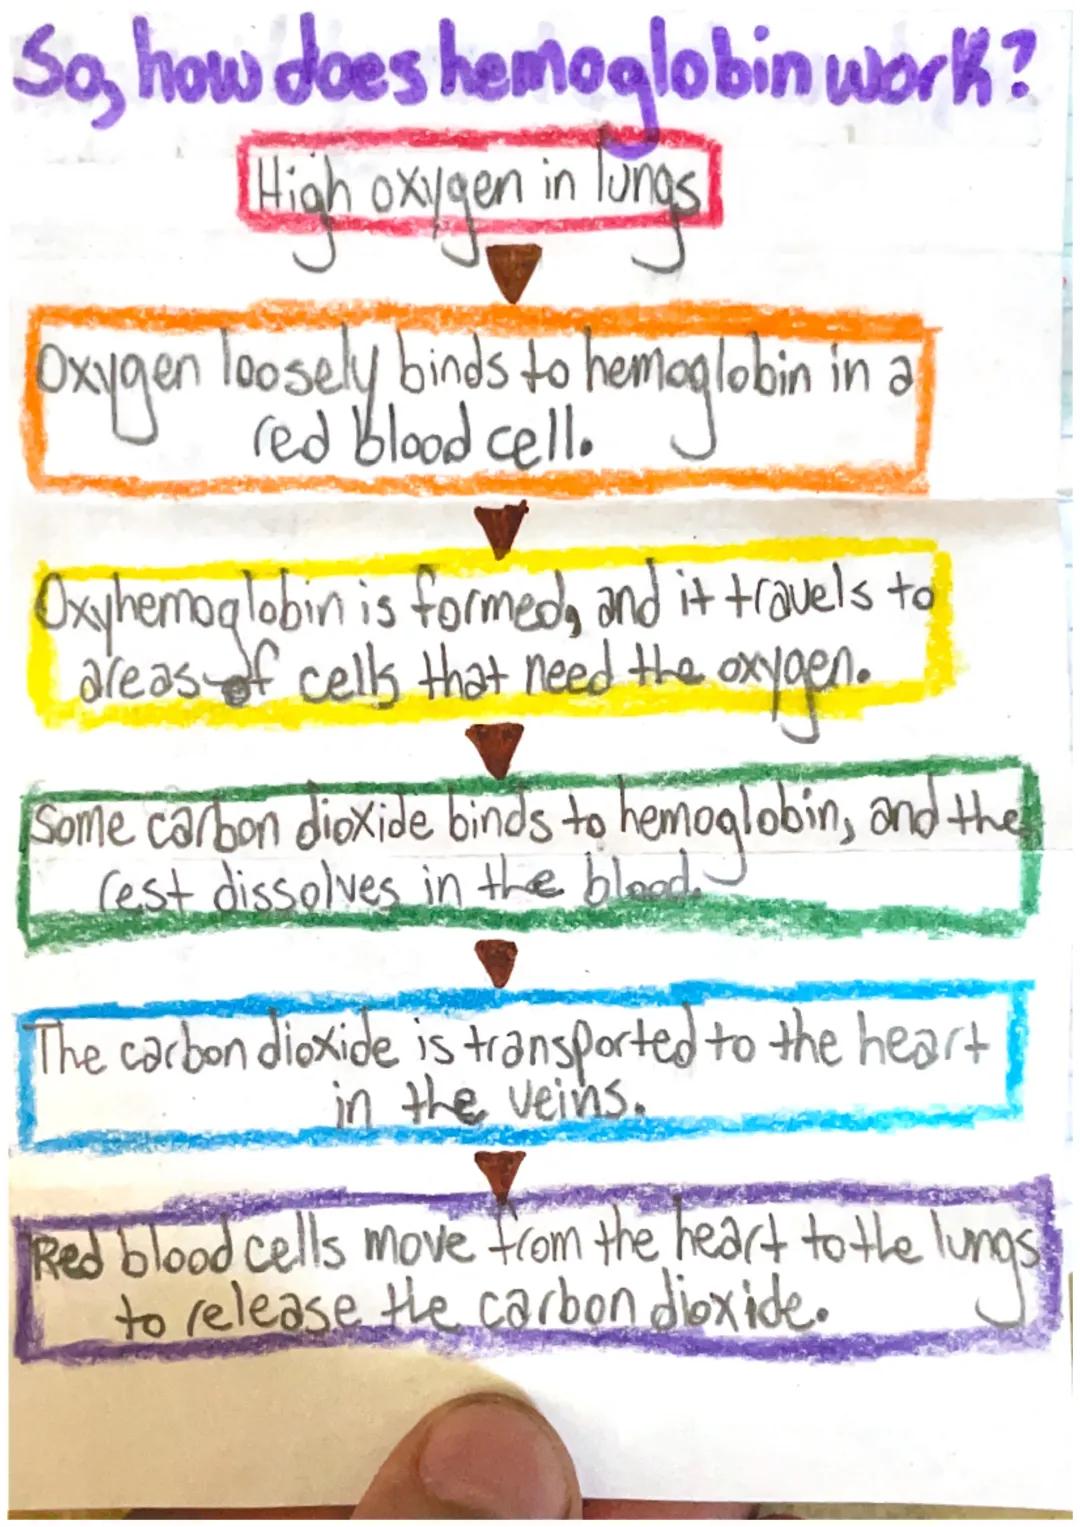 So, how does hemoglobin work?
High oxygen in lungs
Oxygen loosely binds to hemoglobin in a
red blood cell.
Oxyhemoglobin is formed, and it travels to
areas of cells that need the oxygen.
Some carbon dioxide binds to hemoglobin, and the
rest dissolves in the blood.
The carbon dioxide is transported to the heart
in the veins.
Red blood cells move from the heart to the lungs
to release the carbon dioxide.